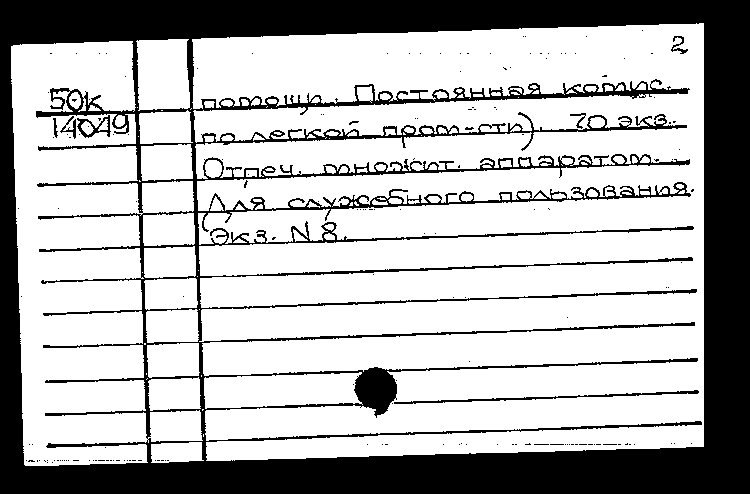 2
50к
14049
помощи. Постоянная комис.
по легкой пром-сти). 70 экз.
Отпеч. множит. аппаратом.
Для служебного пользования.
Экз. N 8.